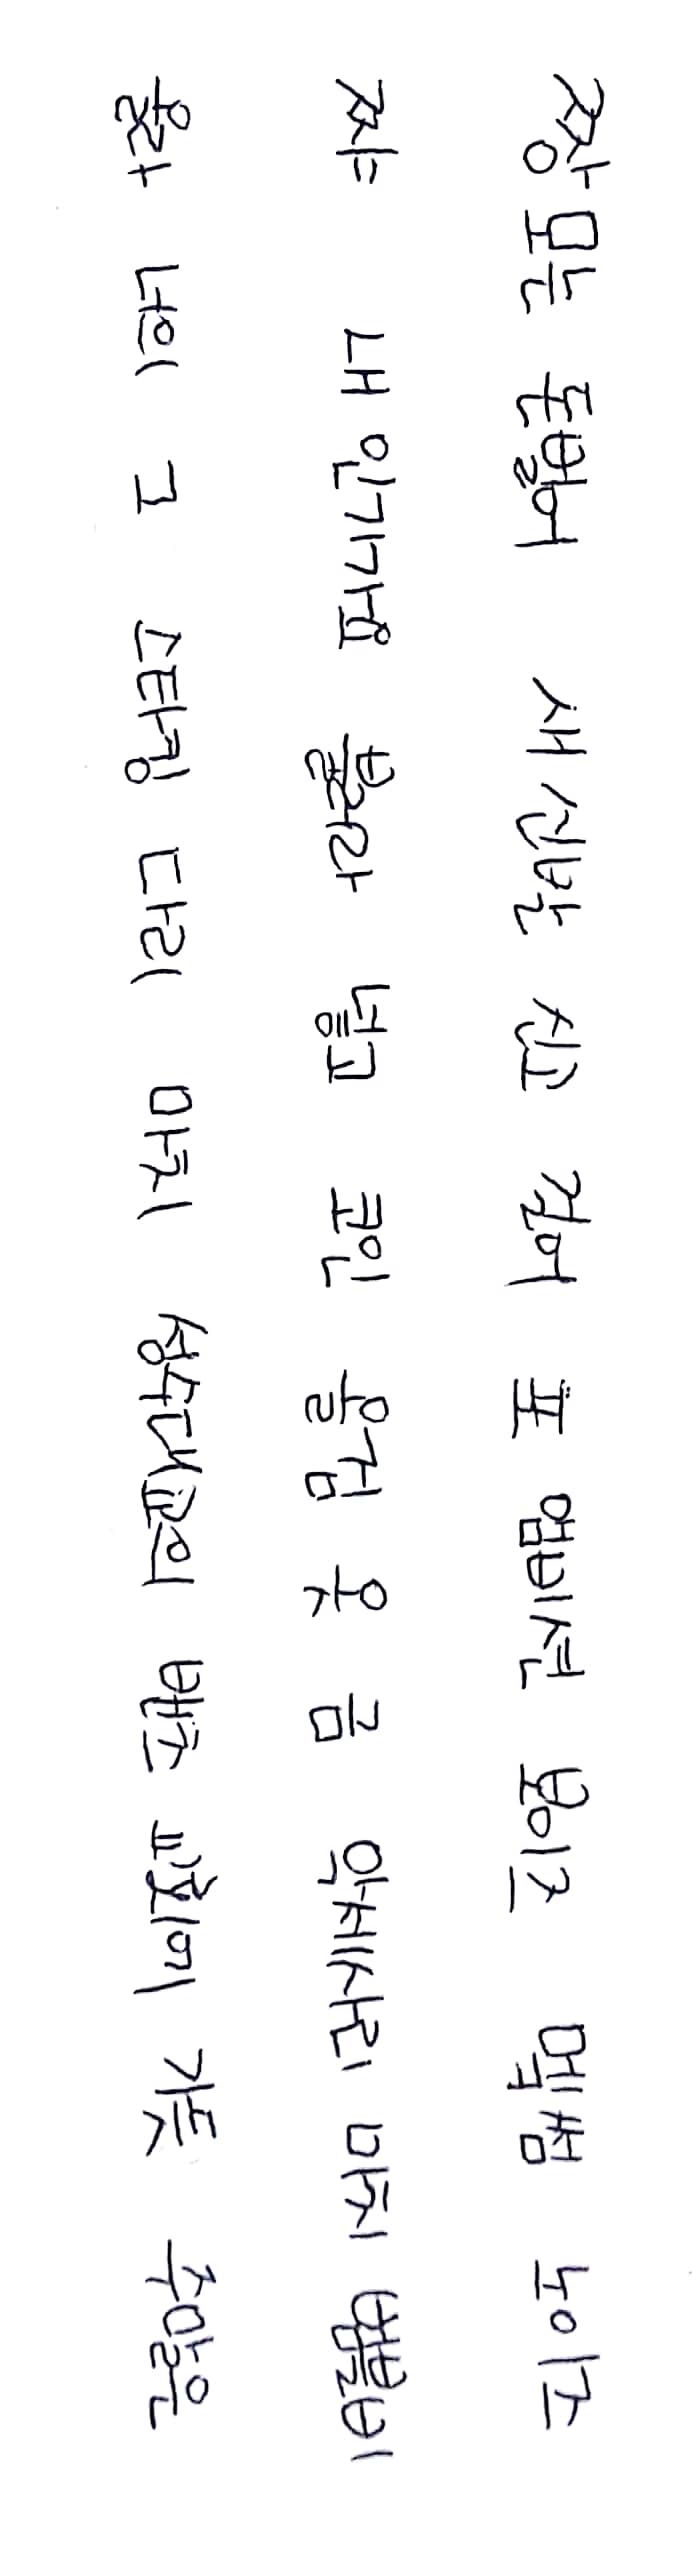 짱모는 돈벌어 새신발 신고 걸어 포 앰비션 보이즈 멬썸 노이즈
쨔 내 인기가요 불러라 넣고 코인 올검 옷 금 악세사리 마치 뱀블비
올라 너의 그 스타킹 다리 마치 성수대교의 밴츠 교회에 가듯 주말은